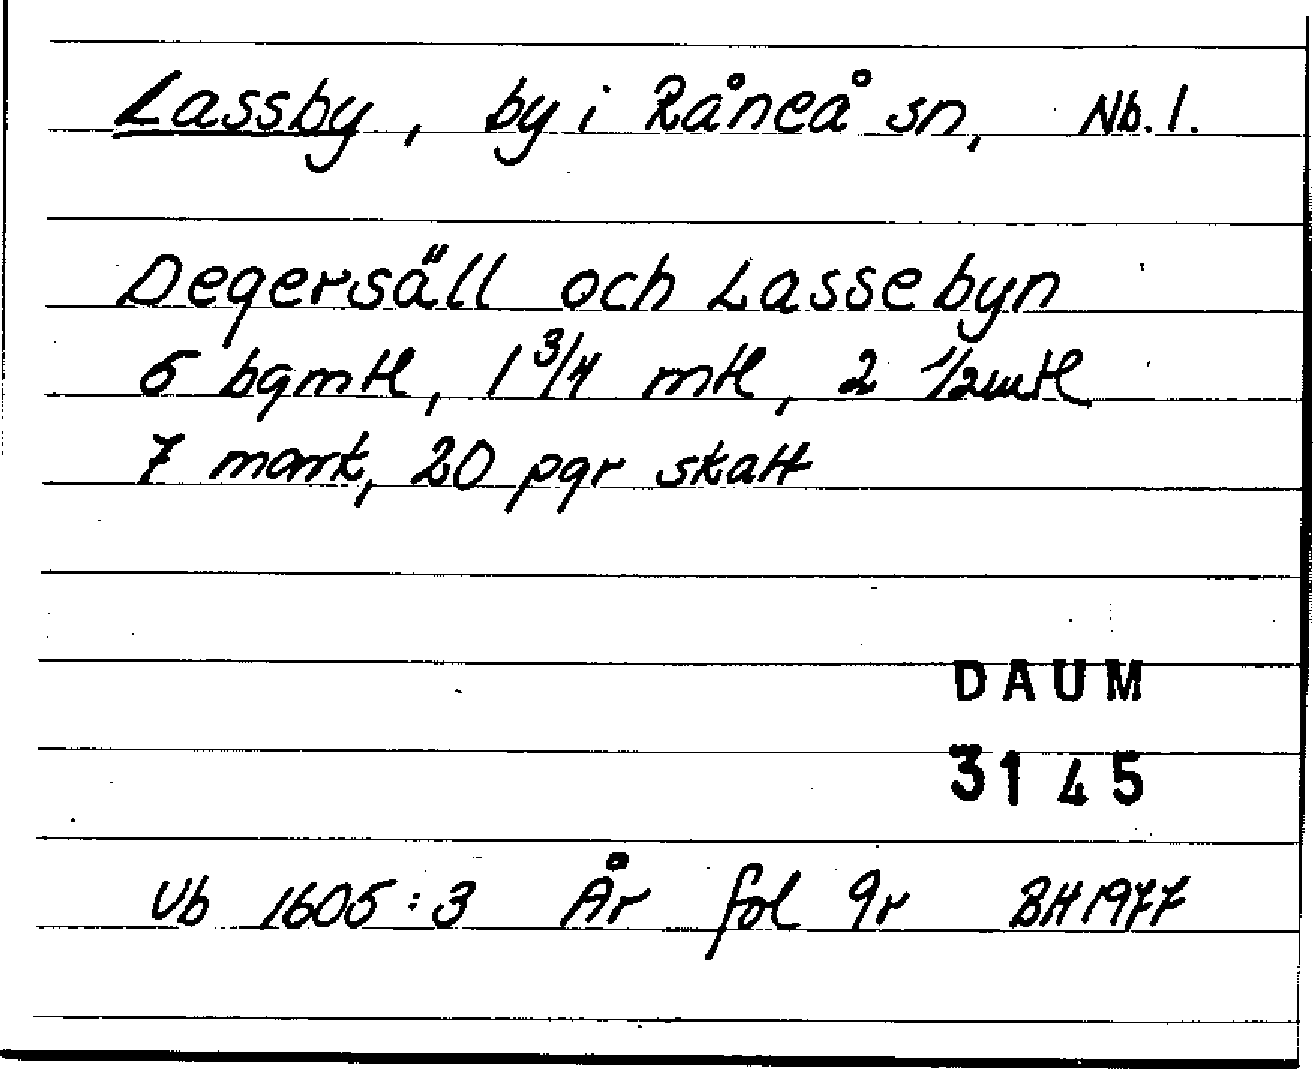 Lassby, by i Råneå sn, Nb. l.
Degersäll och Lassebyn
5 bgmtl, 1 3/4 mtl, 2 1/2 mtl
7 mark, 20 pgr skatt
DAUM
3145
Vb 1605:3 År fol 9r BH 1977